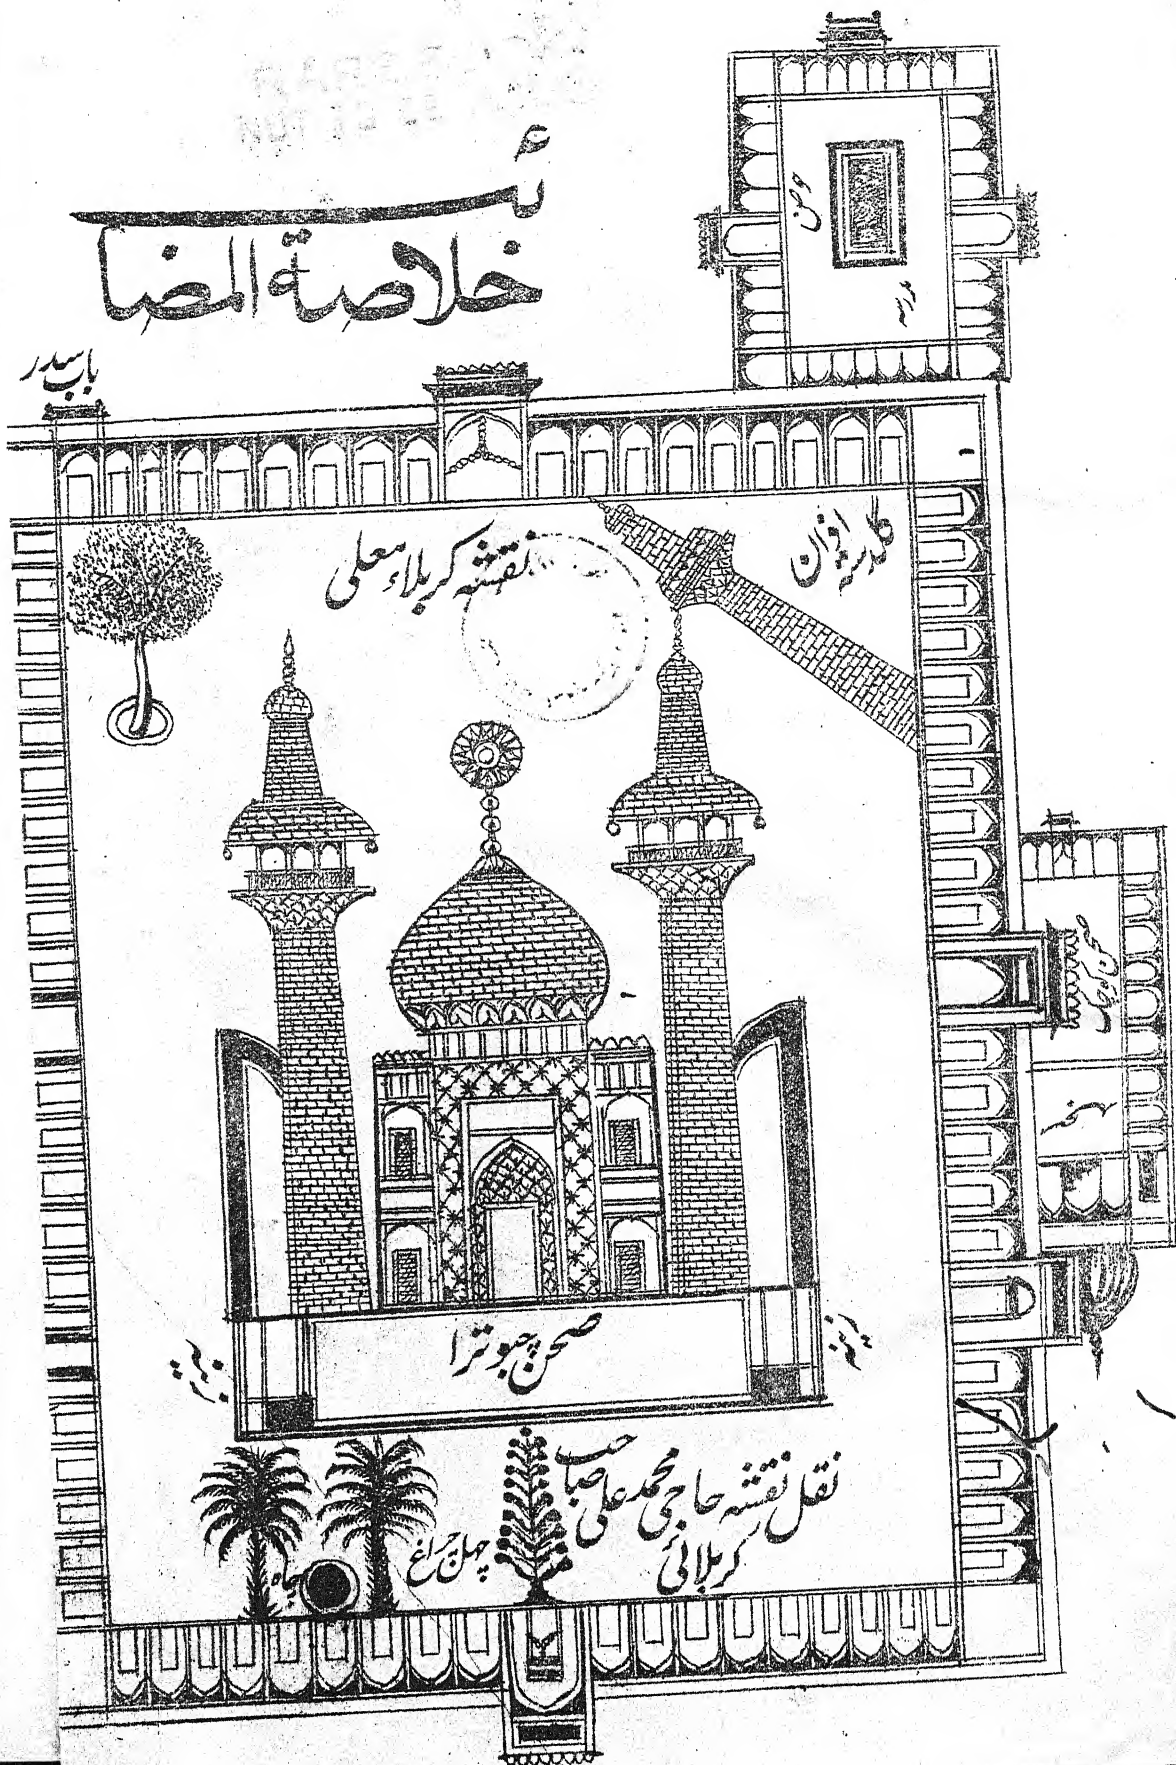 خلاصة المضائب
باب سدر
حوض
مدرسہ
نقشہ کربلاء معلی
گلدستہ اذان
صحن کوچک
صحن چبوترا
زینہ
نقل نقشہ حاجی محمد علی صاحب
کربلائی
چهل چراغ
چاہ